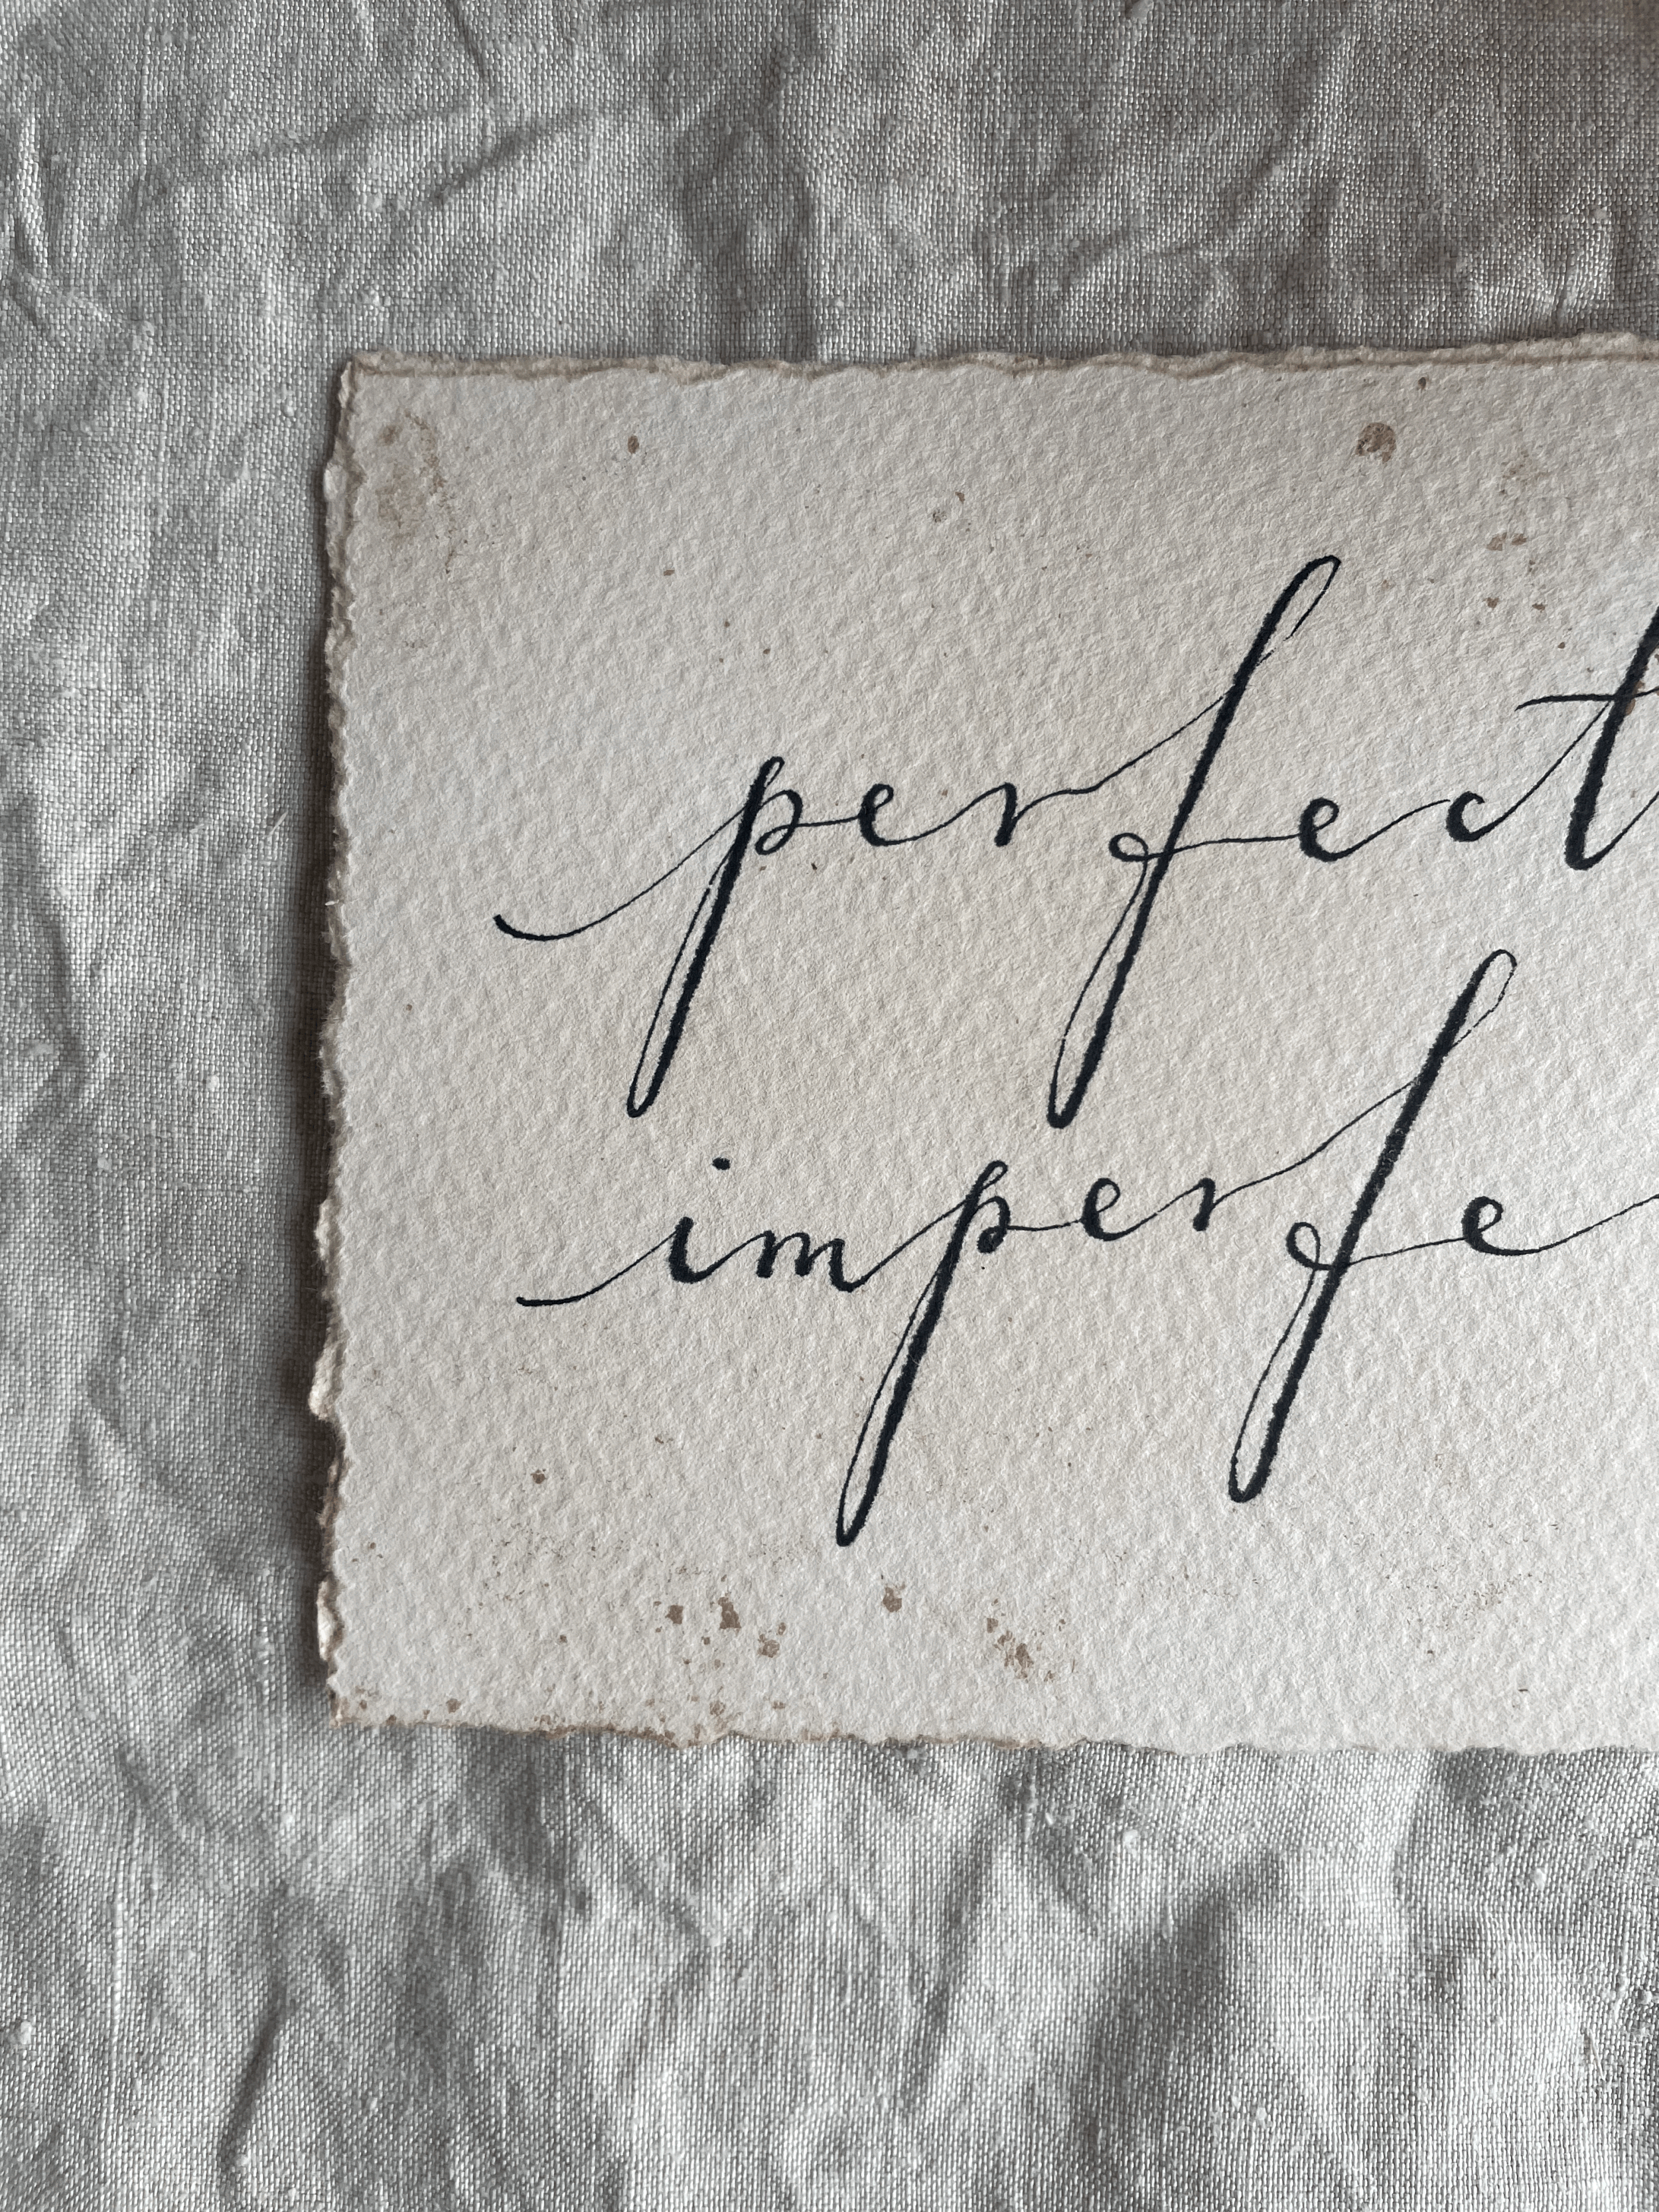 perfect
imperfe